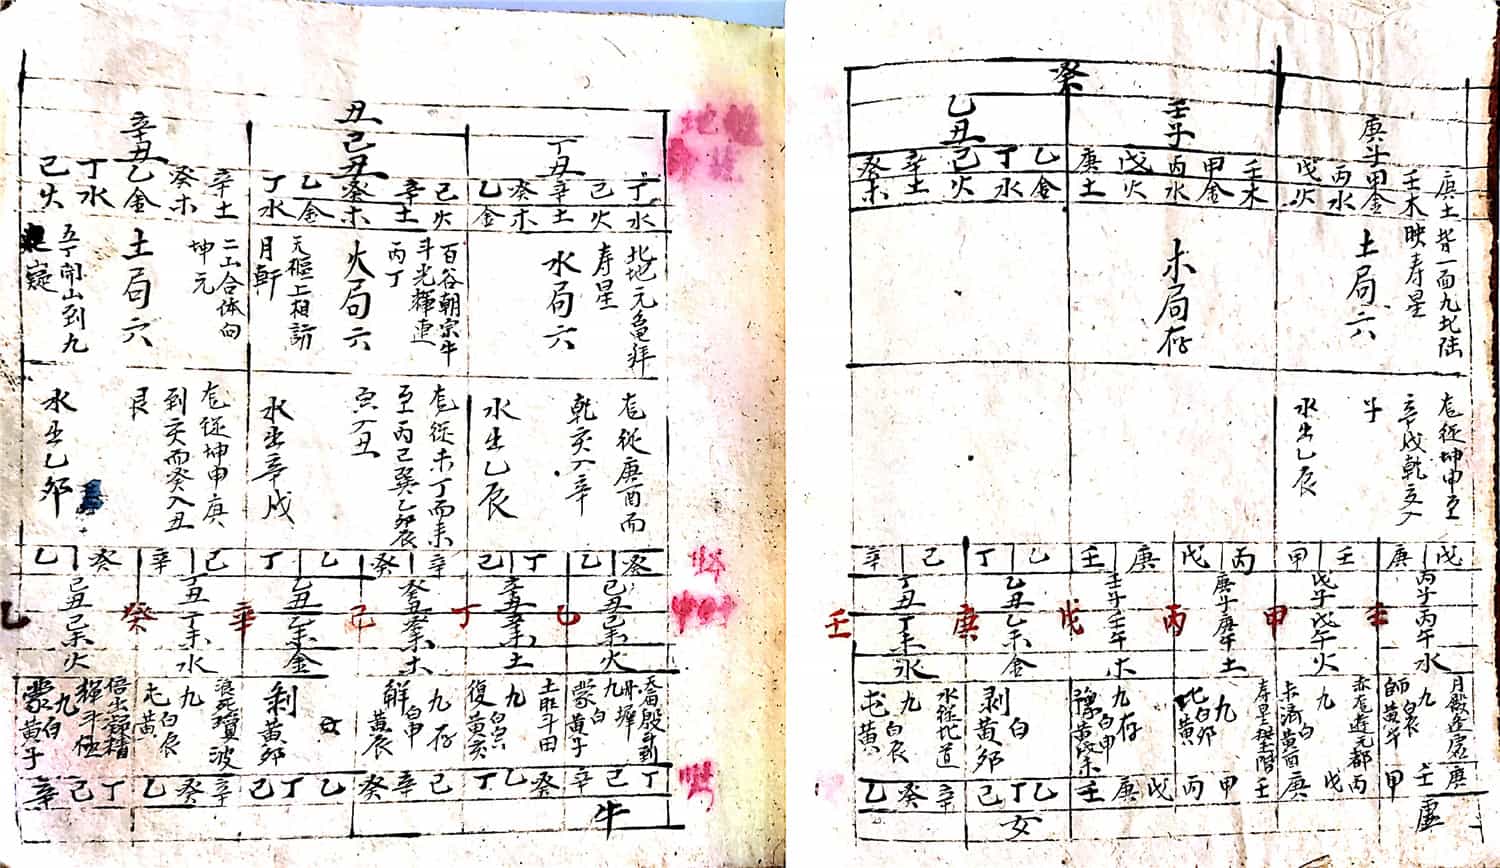 癸
庚子
壬子
乙丑
庚土
壬木
甲金
丙水
戊火
壬木
甲金
丙水
戊火
庚土
乙金
丁水
己火
辛土
癸木
皆一面九北陆
映寿星
土局六
木局存
龙从坤申至
辛戌乾亥入
子
水出乙辰
戊 庚 壬 甲 丙 戊 庚 壬 乙 丁 己 辛
丙子丙午水
戊子戊午火
庚子庚午土
壬子壬午木
乙丑乙未金
丁丑丁未水
壬 甲 丙 戊 庚 壬
月殿逢虚
九
師白辰
黄午
赤龙遊元都
九
白
未済黄酉
寿星壁土階
九
比白卯
黄
九存
豫白申
黄未
白
剥黄卯
水從北道
九
屯白辰
黄
庚 壬 甲 丙 戊 庚 壬 甲 丙 戊 庚 壬 乙 丁 己 辛 癸 乙
虚
女
丑
丁丑
己丑
辛丑
丁水
己火
辛土
癸木
乙金
己火
辛土
癸木
乙金
丁水
辛土
癸木
乙金
丁水
己火
北地元龟拜
寿星
水局六
百谷朝宗牛
斗光輝連
丙丁
火局六
天樞上相訪
月軒
二山合体向
坤元
土局六
五丁開山到九
嶷
龙從庚酉而
乾亥入辛
水出乙辰
龙從未丁而来
至丙己巽乙卯辰
寅入丑
水出辛戌
龙從坤申庚
到亥而癸入丑
艮
水出乙卯
癸 乙 丁 己 辛 癸 乙 丁 己 辛 癸 乙
己丑己未火
辛丑辛未土
癸丑癸未木
乙丑乙未金
丁丑丁未水
己丑己未火
乙 丁 己 辛 癸 乙
九
蒙白
黄子
土邱斗田
九
復白
黄亥
九存
解白申
黄辰
剥黄卯
浪死瓊波
九
屯白辰
黄
倍出錦精
輝斗極
九
蒙白
黄子
丁 己 辛 癸 乙 丁 己 辛 癸 乙 丁 己 辛 癸 乙 丁 己 辛
牛